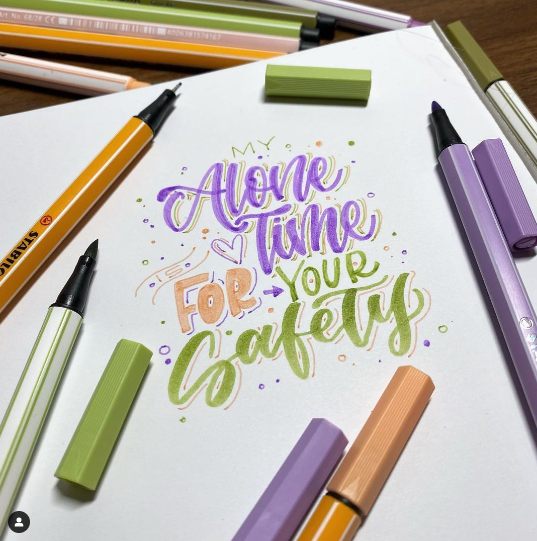 MY
Alone
Time
IS
FOR → YOUR
Safety
STABILO